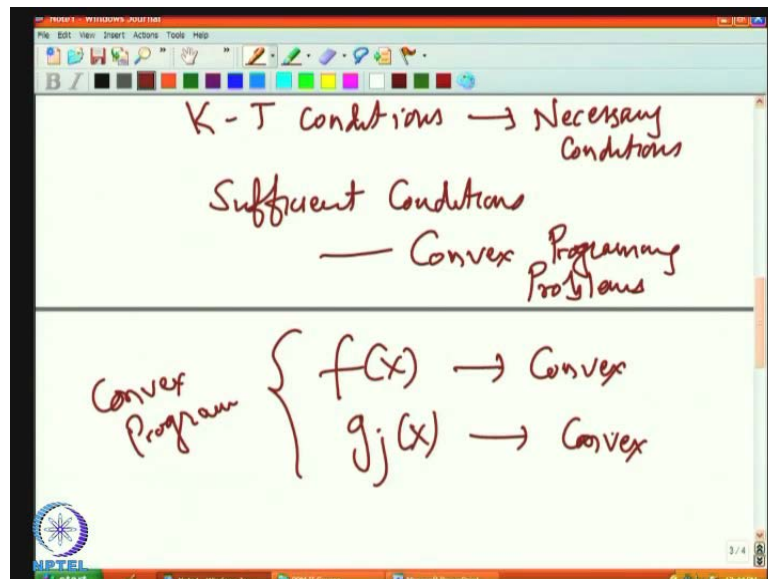 Note1 - Windows Journal
File Edit View Insert Actions Tools Help
B I
K - T Conditions → Necessary
Conditions
Sufficient Conditions
— Convex Programing
Problems
Convex
Program
f(x) → Convex
gj(x) → Convex
3/4
NPTEL